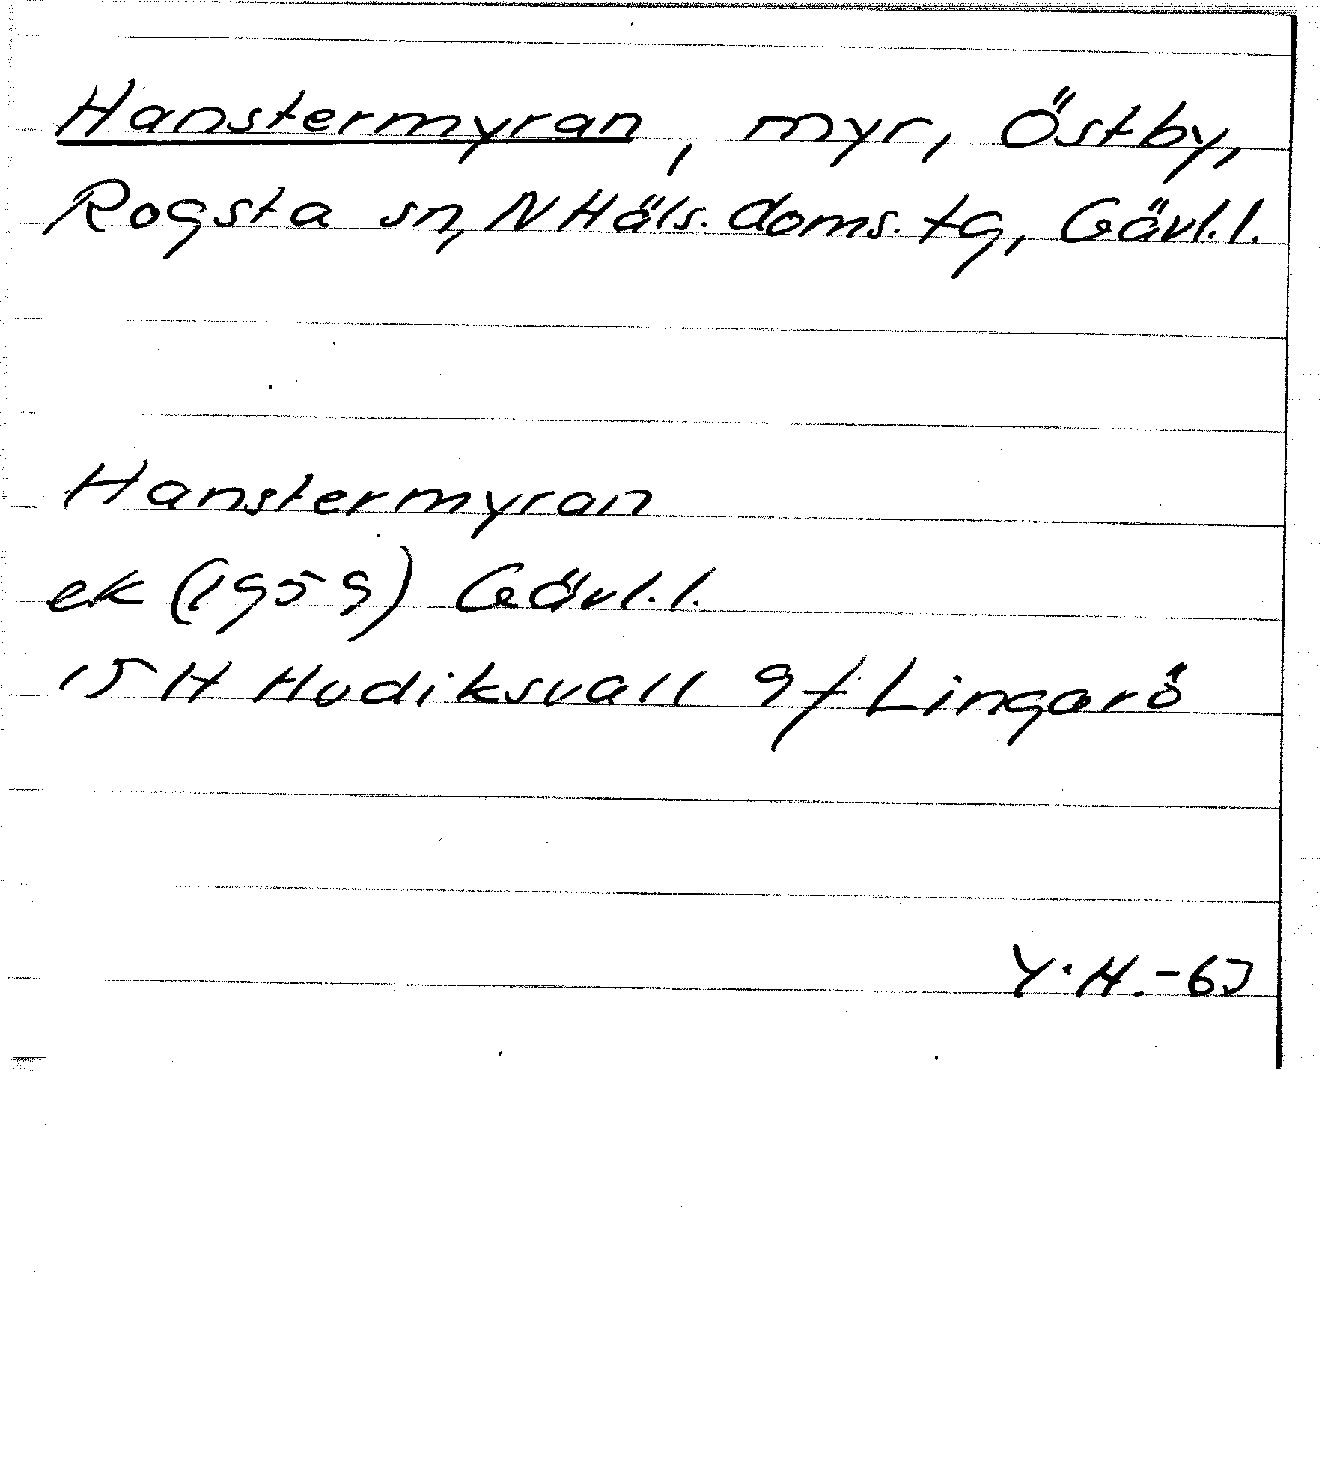 Hanstermyran, myr, Östby,
Rogsta sn, N Häls. doms. tg, Gävl. l.
Hanstermyran
ek (1959) Gävl. l.
15 H Hudiksvall 9 f Lingarö
Y. H. -63